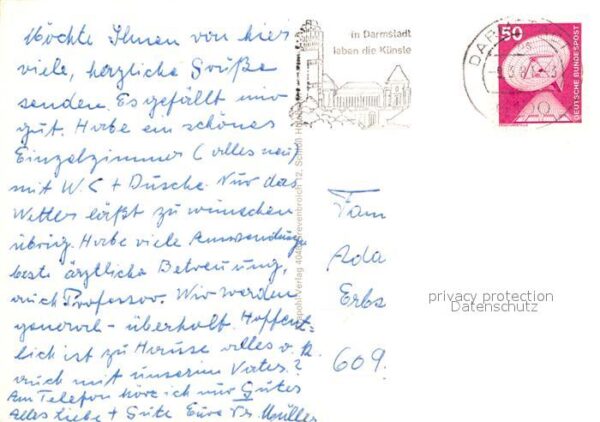 Möchte Ihnen von hier
viele, herzliche Grüße
senden. Es gefällt mir
gut. Habe ein schönes
Einzelzimmer (alles neu)
mit W.C + Dusche. Nur das
Wetter läßt zu wünschen
übrig. Habe viele Anwendung.
beste ärztliche Betreuung,
auch Professor. Wir werden
general-überholt. Hoffent-
lich ist zu Hause alles o.k.
auch mit unserem Vater?
Am Telefon höre ich nur Gutes
Alles Liebe + Gute Eure Müller
in Darmstadt
leben die Künste
DAR
50
DEUTSCHE BUNDESPOST
Ada
Erbs
609
privacy protection
Datenschutz
-Verlag 404 Grevenbroich 12, Schloß